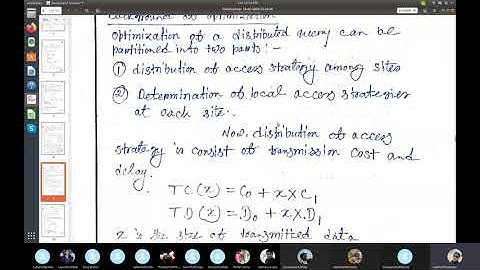 Background of optimization
Optimization of a distributed query can be
partitioned into two parts:-
① distribution of access strategy among sites
② Determination of local access strategies
at each site.
Now, distribution of access
strategy is consist of transmission cost and
delay.
TC(x) = C0 + x X C1
TD(x) = D0 + x X D1
x is the size of transmitted data